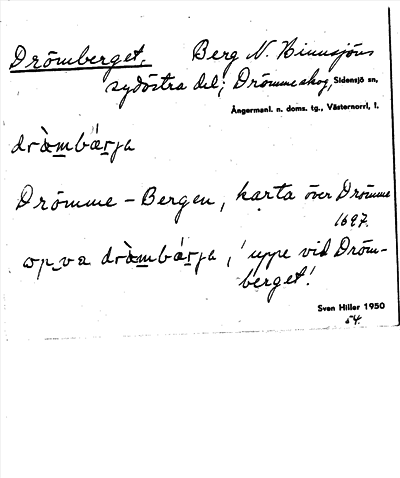 Drömberget. Berg N. Hinnsjöns
sydöstra del; Drömme skog, Sidensjö sn,
Ångermanl. n. doms. tg., Västernorrl. l.
drò̀mbár̲ja
Drömme-Bergen, karta över Drömme
1697.
op va , 'uppe vid Dröm-
berget'.
Sven Hiller 1950
54.